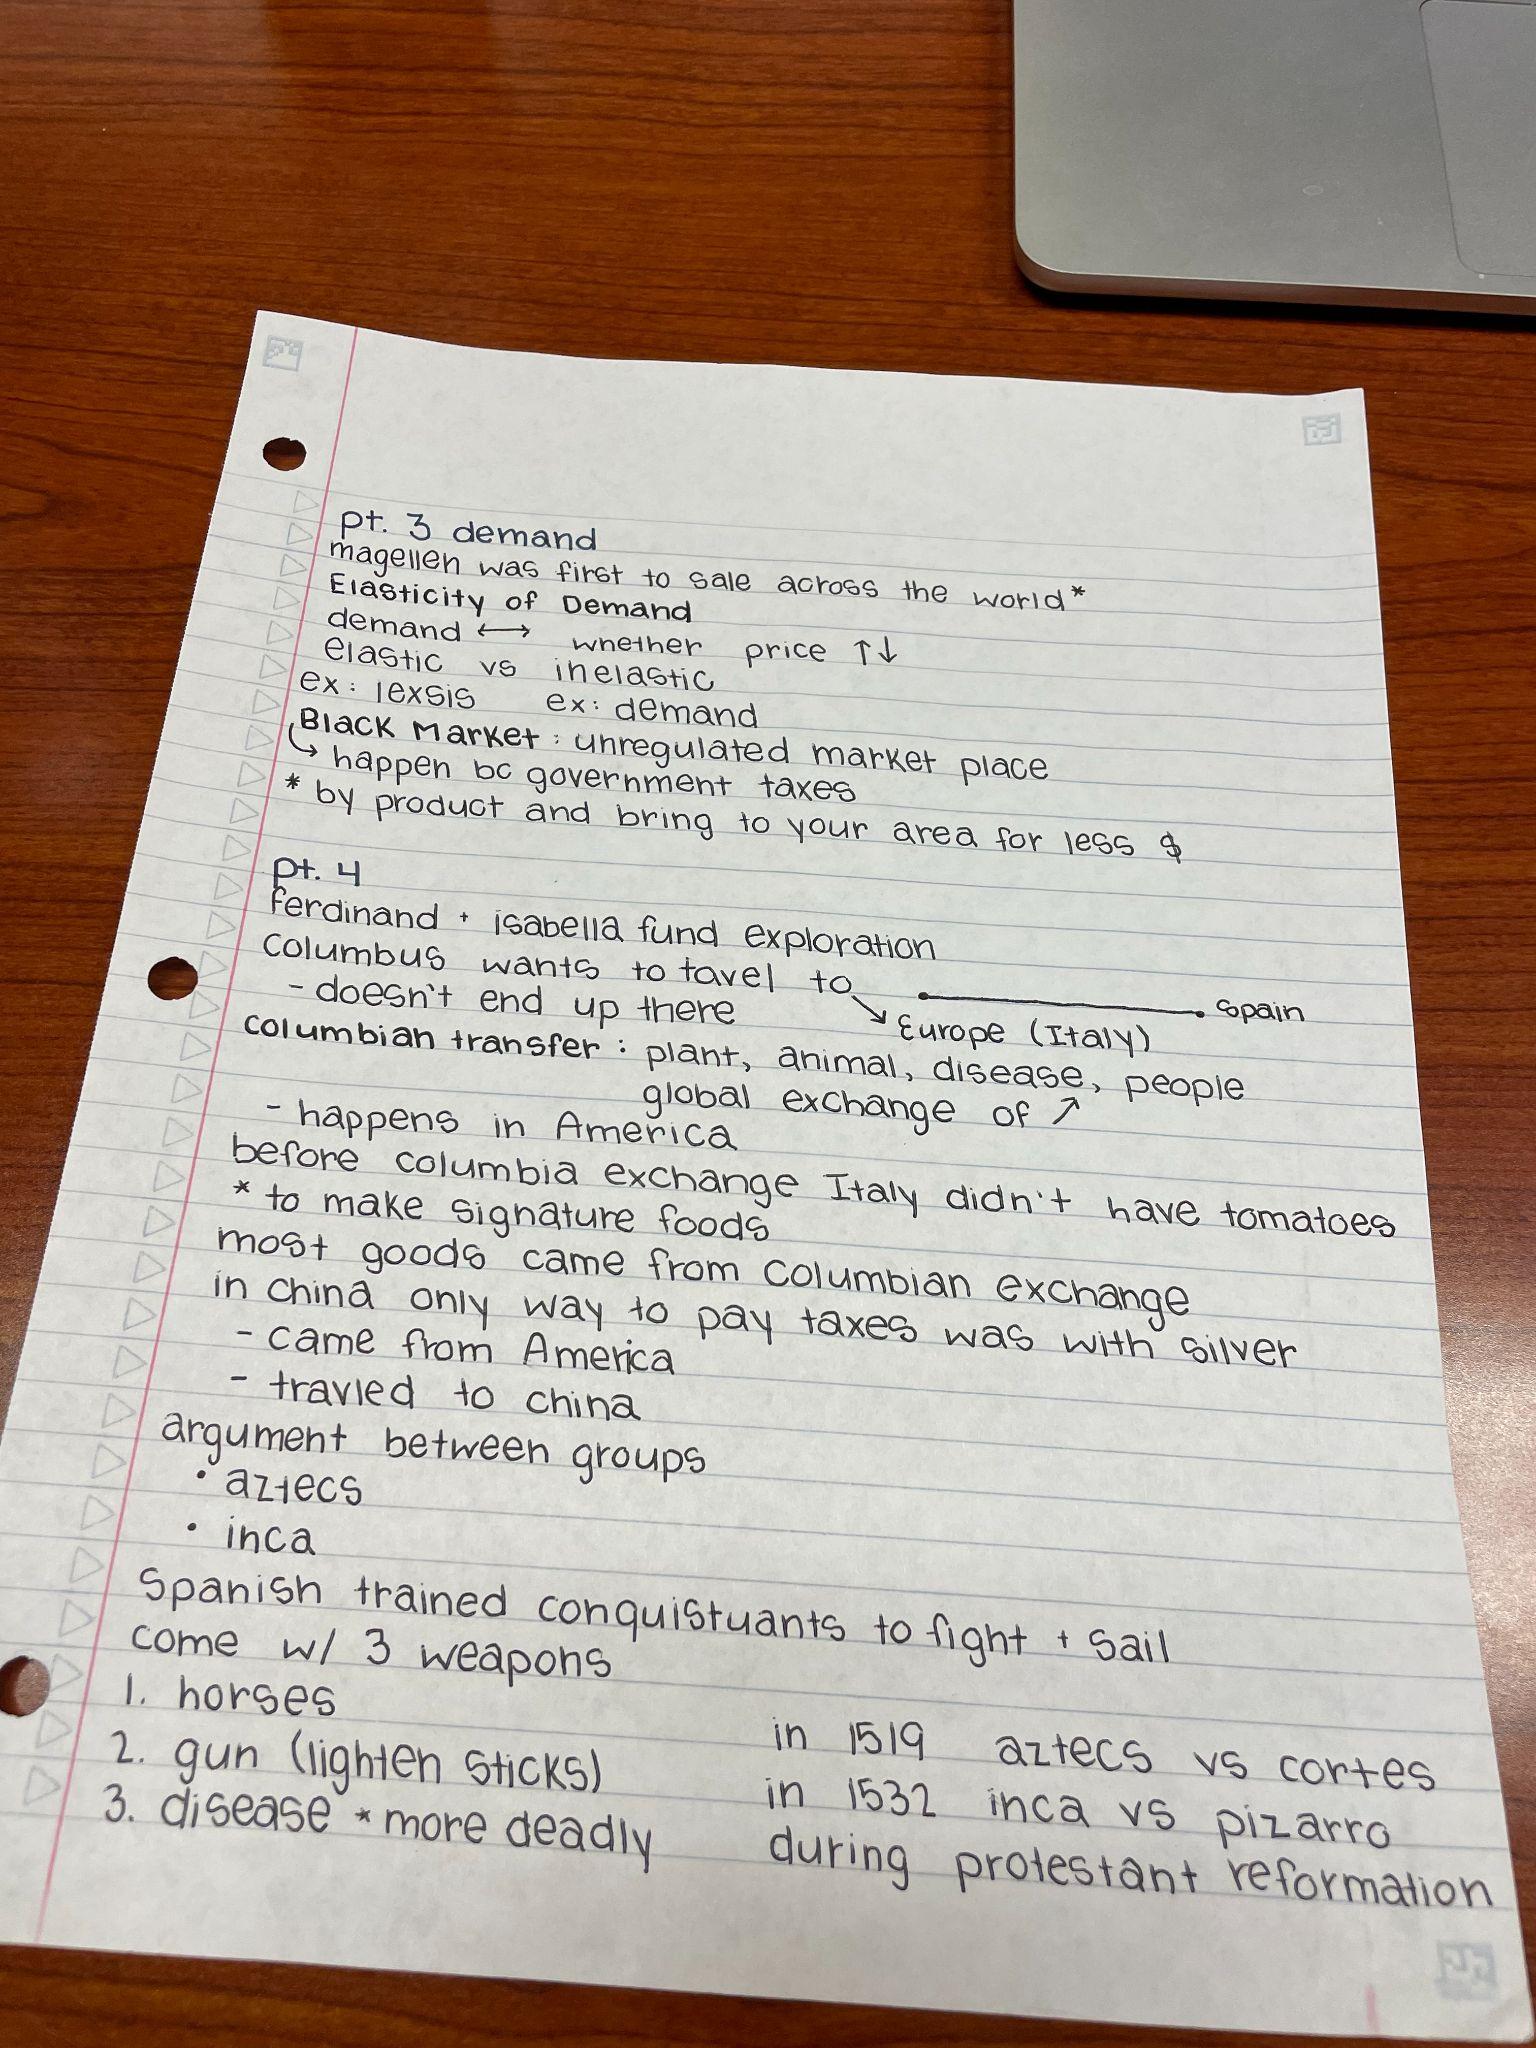 pt. 3 demand
magellen was first to sale across the world*
Elasticity of Demand
demand ↔ whether price ↑↓
elastic vs inelastic
ex: lexsis ex: demand
Black Market: unregulated market place
↳ happen bc government taxes
* by product and bring to your area for less $
pt. 4
ferdinand + isabella fund exploration
columbus wants to tavel to
Spain
- doesn't end up there
↘ Europe (Italy)
columbian transfer: plant, animal, disease, people
global exchange of ↗
- happens in America
before columbia exchange Italy didn't have tomatoes
* to make signature foods
most goods came from Columbian exchange
in china only way to pay taxes was with silver
- came from America
- travled to china
argument between groups
• aztecs
• inca
Spanish trained conquistuants to fight + sail
come w/ 3 weapons
1. horses
2. gun (lighten sticks)
3. disease *more deadly
in 1519 aztecs vs cortes
in 1532 inca vs pizarro
during protestant reformation